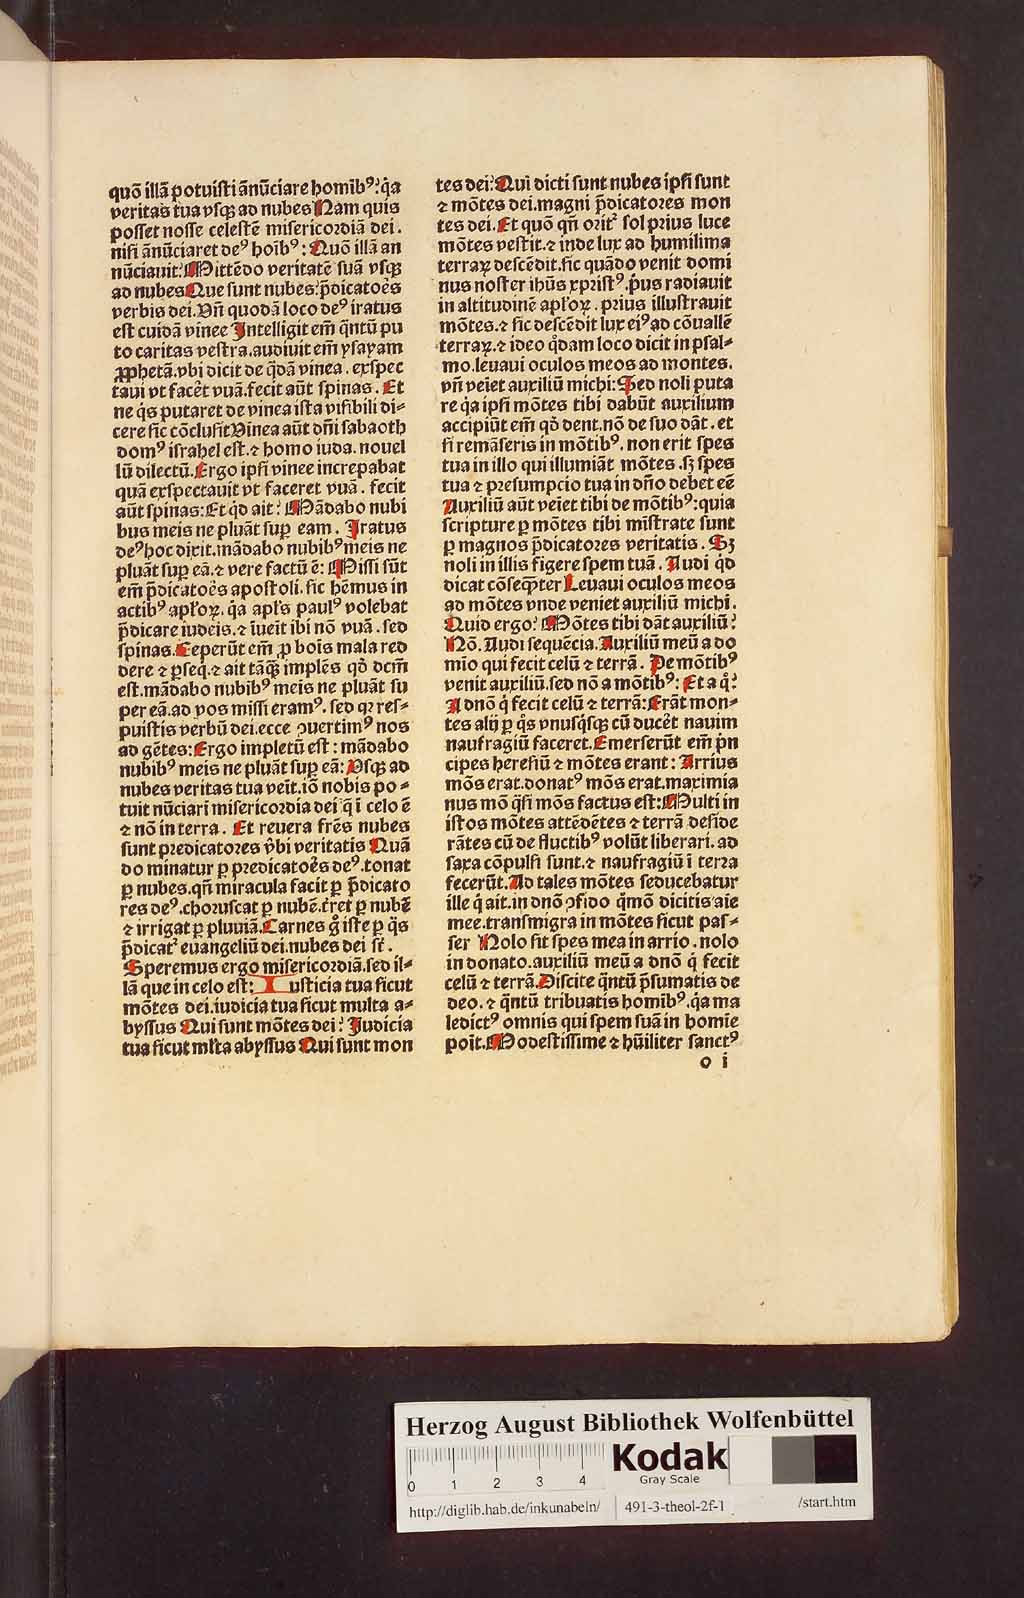 quō illā potuisti ānūciare homibꝰ? q̄a
veritas tua vsqꝫ ad nubes Nam quis
posset nosse celestē misericordiā dei.
nisi ānūciaret deꝰ hoībꝰ: Quō illā an
nūciauit? Mittēdo veritatē suā vsqꝫ
ad nubes Que sunt nubes? p̄dicatoēs
verbis dei. Vn̄ quodā loco deꝰ iratus
est cuidā vinee Intelligit em̄ q̄ntū pu
to caritas vestra. audiuit em̄ ysayam
ꝓphetā. vbi dicit de q̄dā vinea. exspec
taui vt facēt vuā. fecit aūt spinas. Et
ne q̄s putaret de vinea ista visibili di-
cere sic cōclusit Vinea aūt dn̄i sabaoth
domꝰ israhel est. ⁊ homo iuda. nouel
lū dilectū. Ergo ipsi vinee increpabat
quā exspectauit vt faceret vuā. fecit
aūt spinas: Et q̄d ait? Mādabo nubi
bus meis ne pluāt suꝑ eam. Iratus
deꝰ hoc dixit. mādabo nubibꝰ meis ne
pluāt suꝑ eā. ⁊ vere factū ē: Missi sūt
em̄ p̄dicatoēs apostoli. sic hēmus in
actibꝰ apl'oꝝ. q̄a apl's paulꝰ volebat
p̄dicare iudeis. ⁊ īueīt ibi nō vuā. sed
spinas. Ceperūt em̄ ꝓ bois mala red
dere ⁊ ꝑseq̄. ⁊ ait tāqꝫ implēs qd̄ dcm̄
est. mādabo nubibꝰ meis ne pluāt su
per eā. ad vos missi eramꝰ. sed qꝛ res-
puistis verbū dei. ecce ꝯuertimꝰ nos
ad gētes: Ergo impletū est: mādabo
nubibꝰ meis ne pluāt suꝑ eā: Vsqꝫ ad
nubes veritas tua veīt. iō nobis po-
tuit nūciari misericordia dei q̄ ī celo ē
⁊ nō in terra. Et reuera frēs nubes
sunt predicatores v̄bi veritatis Quā
do minatur ꝑ predicatoēs deꝰ. tonat
ꝑ nubes. qn̄ miracula facit ꝑ p̄dicato
res deꝰ. choruscat ꝑ nubē. t̄ret ꝑ nubē
⁊ irrigat ꝑ pluuiā. Carnes g̊ iste ꝑ q̄s
p̄dicat᷑ euangeliū dei. nubes dei st̄.
Speremus ergo misericordiā. sed il-
lā que in celo est: Iusticia tua sicut
mōtes dei. iudicia tua sicut multa a-
byssus Qui sunt mōtes dei? Iudicia
tua sicut ml'ta abyssus Qui sunt mon
tes dei? Qui dicti sunt nubes ipsi sunt
⁊ mōtes dei. magni p̄dicatores mon
tes dei. Et quō qn̄ orit᷑ sol prius luce
mōtes vestit. ⁊ inde lux ad humilima
terraꝝ descēdit. sic quādo venit domi
nus noster ihūs xpristꝰ. p̄us radiauit
in altitudinē apl'oꝝ. prius illustrauit
mōtes. ⁊ sic descēdit lux eiꝰ ad cōuallē
terraꝝ. ⁊ ideo q̊dam loco dicit in psal-
mo. leuaui oculos meos ad montes.
vn̄ veīet auxiliū michi: Sed noli puta
re q̄a ipsi mōtes tibi dabūt auxilium
accipiūt em̄ qd̄ dent. nō de suo dāt. et
si remāseris in mōtibꝰ. non erit spes
tua in illo qui illumiāt mōtes. sꝫ spes
tua ⁊ presumpcio tua in dn̄o debet eē
Auxiliū aūt veīet tibi de mōtibꝰ: quia
scripture ꝑ mōtes tibi mīstrate sunt
ꝑ magnos p̄dicatores veritatis. Sꝫ
noli in illis figere spem tuā. Audi q̄d
dicat cōseq̄nter Leuaui oculos meos
ad mōtes vnde veniet auxiliū michi.
Quid ergo? Mōtes tibi dāt auxiliū?
Nō. Audi sequēcia. Auxiliū meū a do
mio qui fecit celū ⁊ terrā. De mōtibꝰ
venit auxiliū. sed nō a mōtibꝰ: Et a q̊?
A dnō q̄ fecit celū ⁊ terrā: Erāt mon-
tes alij ꝑ q̄s vnusq̄sqꝫ cū ducēt nauim
naufragiū faceret. Emerserūt em̄ p̄n
cipes heresiū ⁊ mōtes erant: Arrius
mōs erat. donatꝰ mōs erat. maximia
nus mō q̄si mōs factus est: Multi in
istos mōtes attēdētes ⁊ terrā deside
rātes cū de fluctibꝰ volūt liberari. ad
saxa cōpulsi sunt. ⁊ naufragiū ī terra
fecerūt. Ad tales mōtes seducebatur
ille q̄ ait. in dnō ꝯfido q̊mō dicitis aīe
mee. transmigra in mōtes sicut pas-
ser Nolo sit spes mea in arrio. nolo
in donato. auxiliū meū a dnō q̄ fecit
celū ⁊ terrā. Discite q̄ntū p̄sumatis de
deo. ⁊ q̄ntū tribuatis homibꝰ. q̄a ma
ledictꝰ omnis qui spem suā in homīe
poīt. Modestissime ⁊ hūiliter sanctꝰ
o i
Herzog August Bibliothek Wolfenbüttel
0 1 2 3 4
Kodak
Gray Scale
http://diglib.hab.de/inkunabeln/ 491-3-theol-2f-1 /start.htm